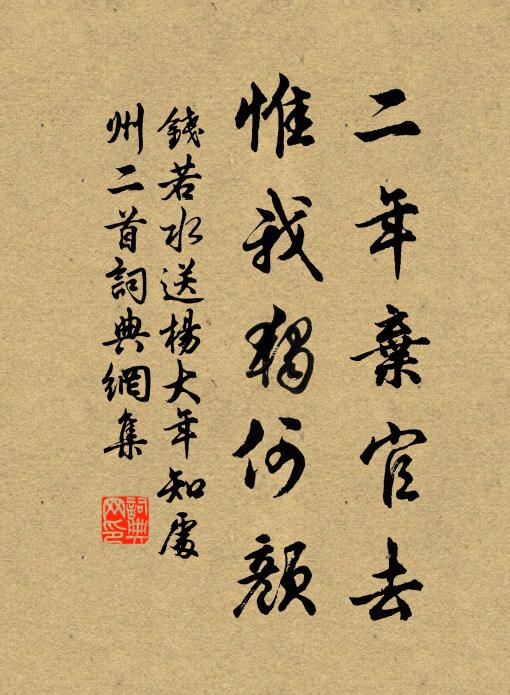 二年棄官去
惟我獨何顏
錢若水送楊大年知處
州二首詞典網集
詞典
网印